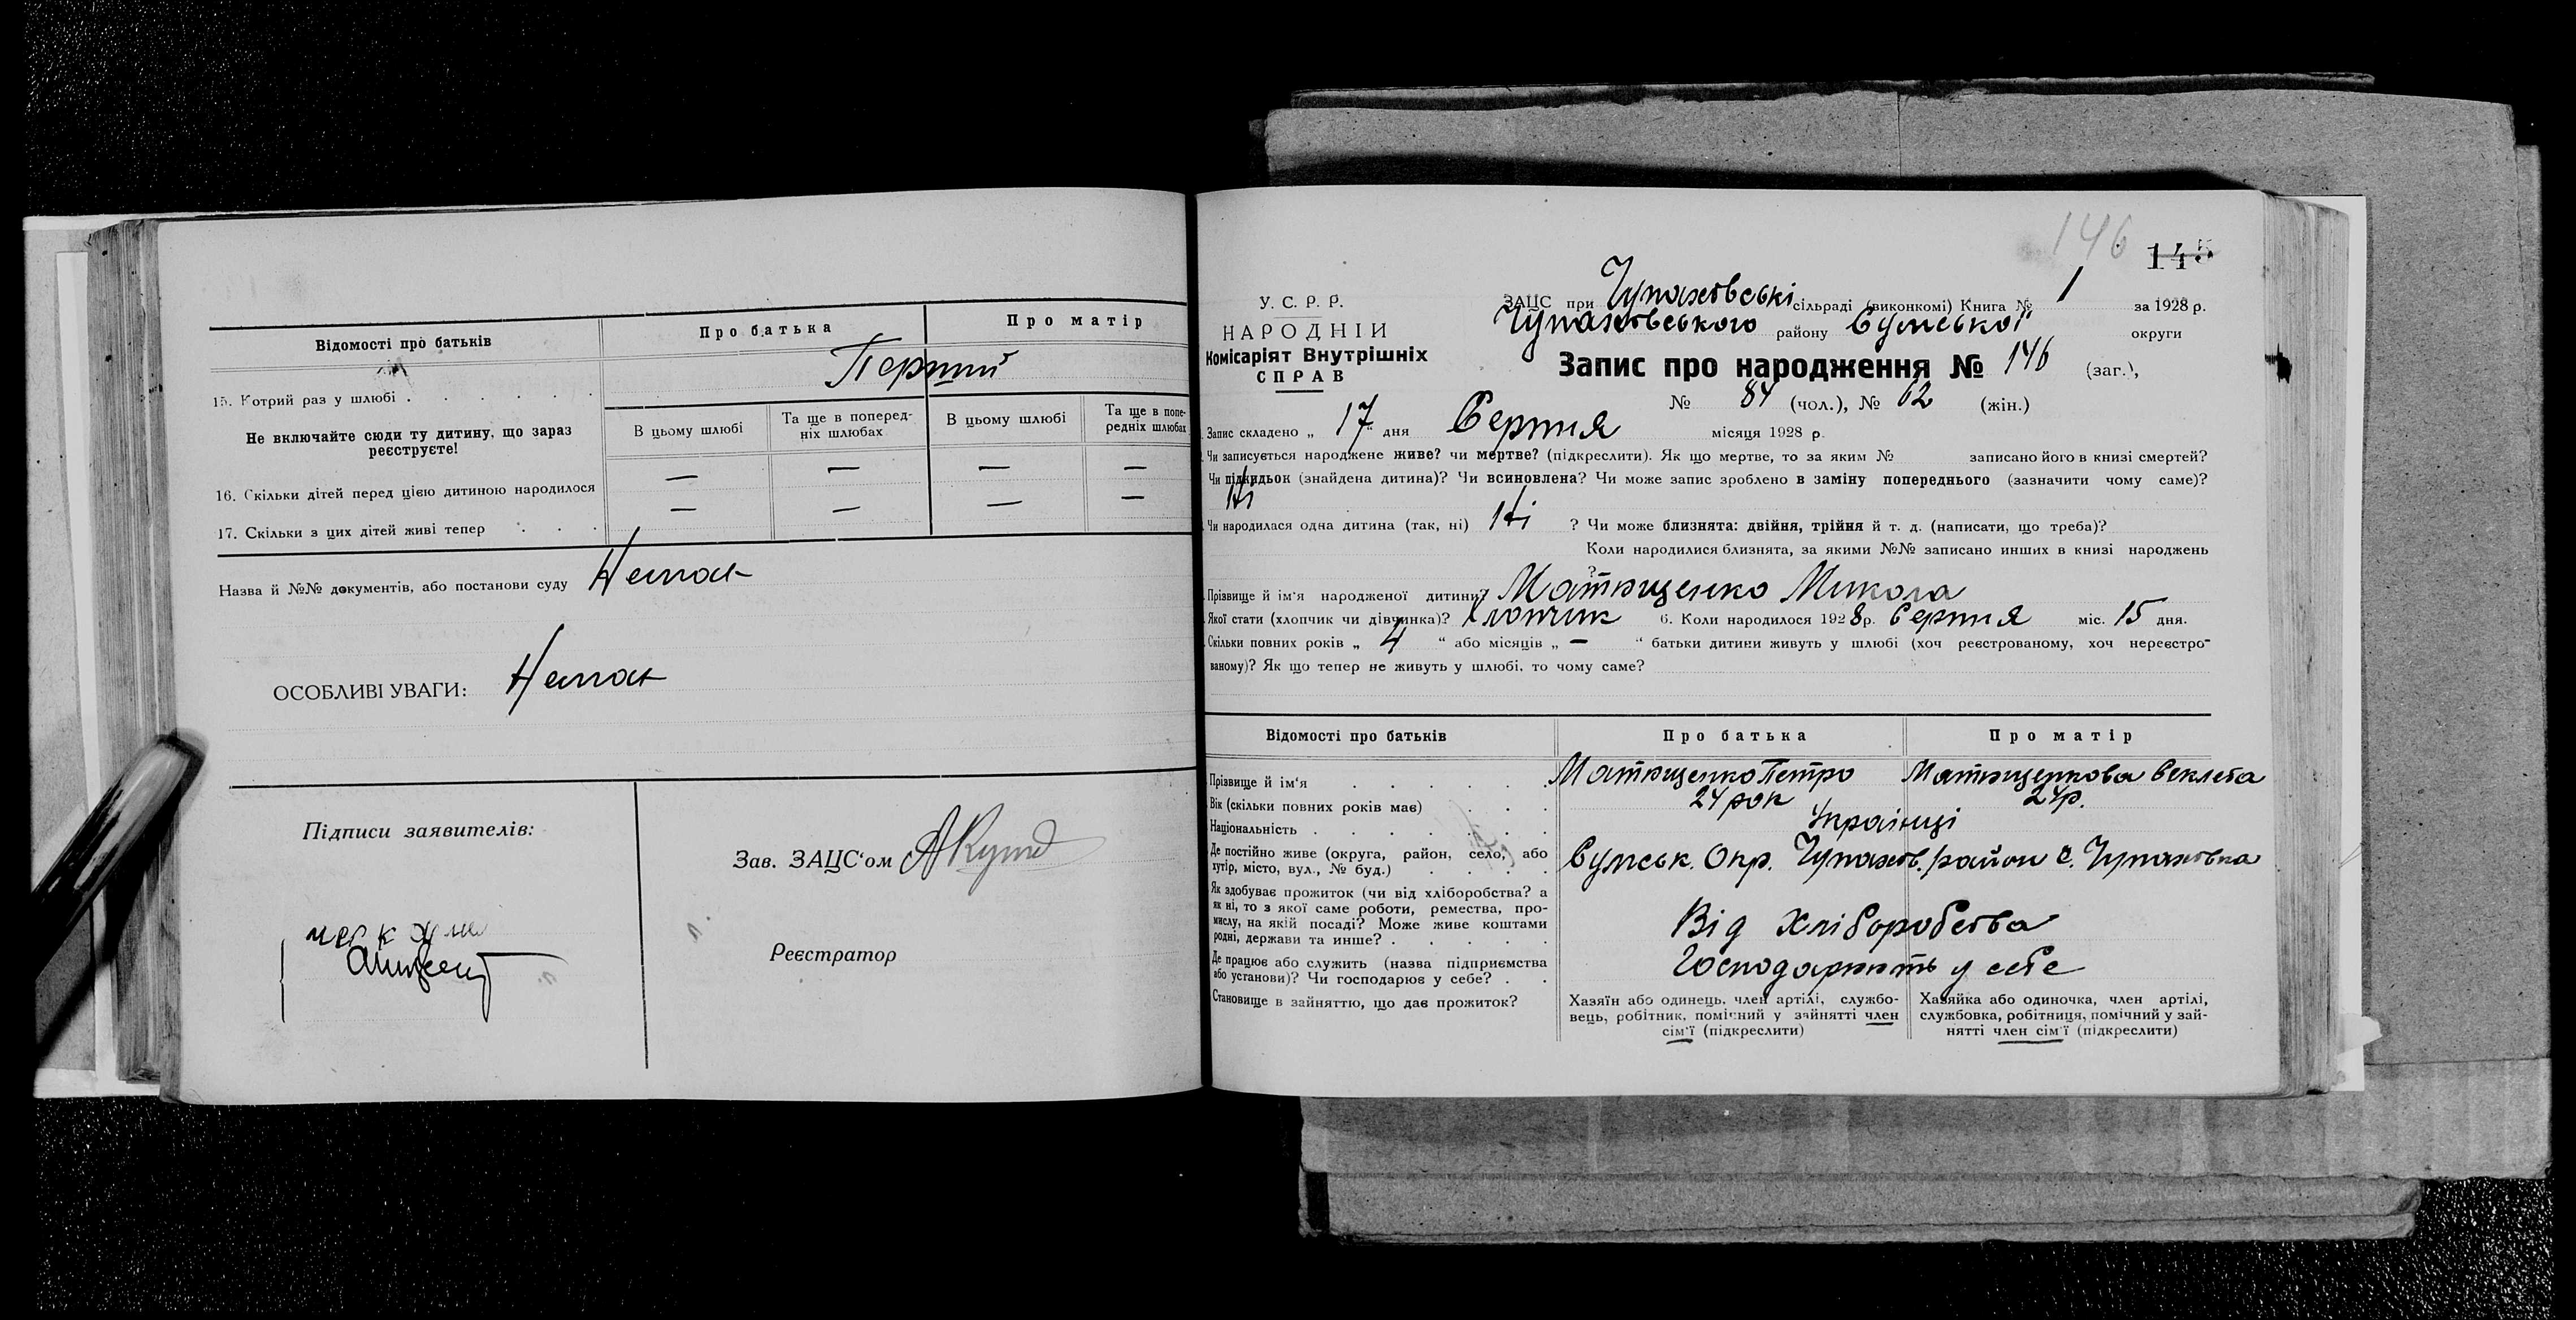 Відомості про батьків
Про батька
Про матір
15. Котрий раз у шлюбі . . . . . .
Перший
Не включайте сюди ту дитину, що зараз
реєструєте!
В цьому шлюбі
Та ще в поперед-
ніх шлюбах
В цьому шлюбі
Та ще в попе-
редніх шлюбах
16. Скільки дітей перед цією дитиною народилося — — — —
17. Скільки з цих дітей живі тепер . . . — — — —
Назва й №№ документів, або постанови суду Немає
ОСОБЛИВІ УВАГИ: Немає
Підписи заявителів:
Зав. ЗАЦС'ом
Реєстратор
146
145
У. С. Р. Р.
НАРОДНІЙ
Комісаріят Внутрішніх
СПРАВ
ЗАЦС при Чупахівські сільраді (виконкомі) Книга № 1 за 1928 р.
Чупахівського району Сумської округи
Запис про народження № 146 (заг.),
№ 84 (чол.), № 62 (жін.)
Запис складено „ 17 " дня Серпня місяця 1928 р.
Чи записується народжене живе? чи мертве? (підкреслити). Як що мертве, то за яким № записано його в книзі смертей?
Чи підкидьок (знайдена дитина)? Чи всиновлена? Чи може запис зроблено в заміну попереднього (зазначити чому саме)?
Ні
Чи народилася одна дитина (так, ні) Ні ? Чи може близнята: двійня, трійня й т. д. (написати, що треба)?
Коли народилися близнята, за якими №№ записано инших в книзі народжень
?
Прізвище й ім'я народженої дитини? Матющенко Микола
Якої стати (хлопчик чи дівчинка)? Хлопчик 6. Коли народилося 1928 р. Серпня міс. 15 дня.
Скільки повних років „ 4 " або місяців „ — " батьки дитини живуть у шлюбі (хоч реєстрованому, хоч нереєстро-
ваному)? Як що тепер не живуть у шлюбі, то чому саме?
Відомості про батьків
Про батька
Про матір
Прізвище й ім'я . . . . . . Матющенко Петро Матющенкова Веклета
Вік (скільки повних років має) . . . 24 рок 24 р.
Національність . . . . . . . Українці
Де постійно живе (округа, район, село, або
хутір, місто, вул., № буд.) . . . .
Сумськ. Окр. Чупахов. район с. Чупаховка
Як здобуває прожиток (чи від хліборобства? а
як ні, то з якої саме роботи, ремества, про-
мислу, на якій посаді? Може живе коштами
родні, держави та инше? . . . . .
Від Хліборобства
Де працює або служить (назва підприємства
або установи)? Чи господарює у себе? . .
Господарюють у себе
Становище в зайняттю, що дає прожиток?
Хазяїн або одинець, член артілі, службо-
вець, робітник, помічний у зайнятті член
сім'ї (підкреслити)
Хазяйка або одиночка, член артілі,
службовка, робітниця, помічний у зай-
нятті член сім'ї (підкреслити)